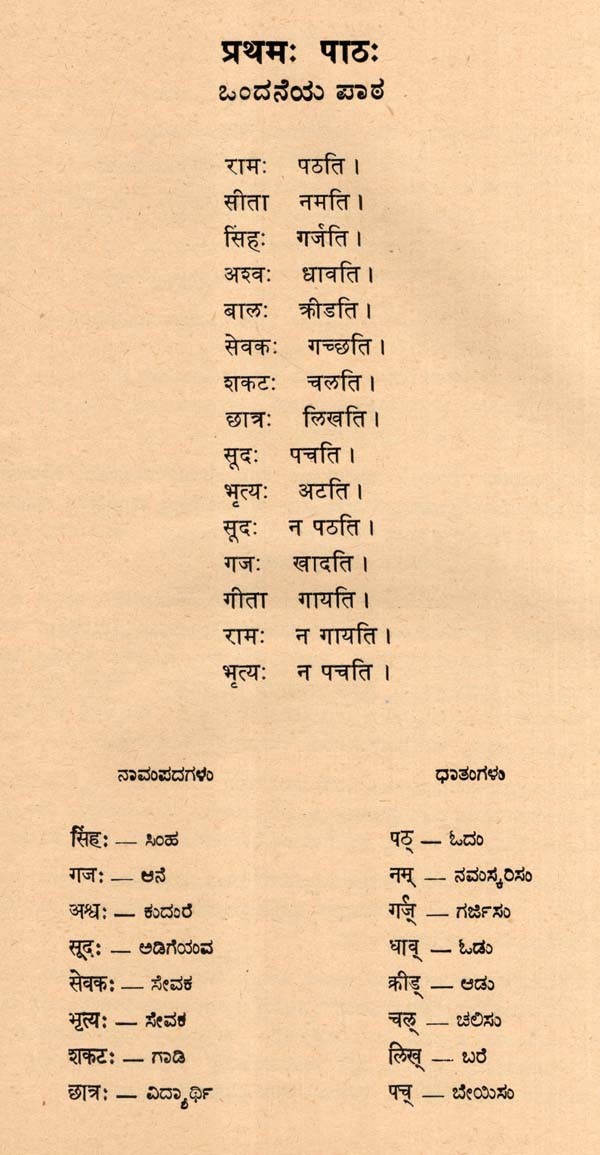 प्रथमः पाठः
ಒಂದನೆಯ ಪಾಠ
रामः पठति ।
सीता नमति ।
सिंहः गर्जति ।
अश्वः धावति ।
बालः क्रीडति ।
सेवकः गच्छति ।
शकटः चलति ।
छात्रः लिखति ।
सूदः पचति ।
भृत्यः अटति ।
सूदः न पठति ।
गजः खादति ।
गीता गायति ।
रामः न गायति ।
भृत्यः न पचति ।
ನಾಮಪದಗಳು ಧಾತುಗಳು
सिंहः — ಸಿಂಹ पठ् — ಓದು
गजः — ಆನೆ नम् — ನಮಸ್ಕರಿಸು
अश्वः — ಕುದುರೆ गर्ज् — ಗರ್ಜಿಸು
सूदः — ಅಡಿಗೆಯವ धाव् — ಓಡು
सेवकः — ಸೇವಕ क्रीड् — ಆಡು
भृत्यः — ಸೇವಕ चल् — ಚಲಿಸು
शकटः — ಗಾಡಿ लिख् — ಬರೆ
छात्रः — ವಿದ್ಯಾರ್ಥಿ पच् — ಬೇಯಿಸು